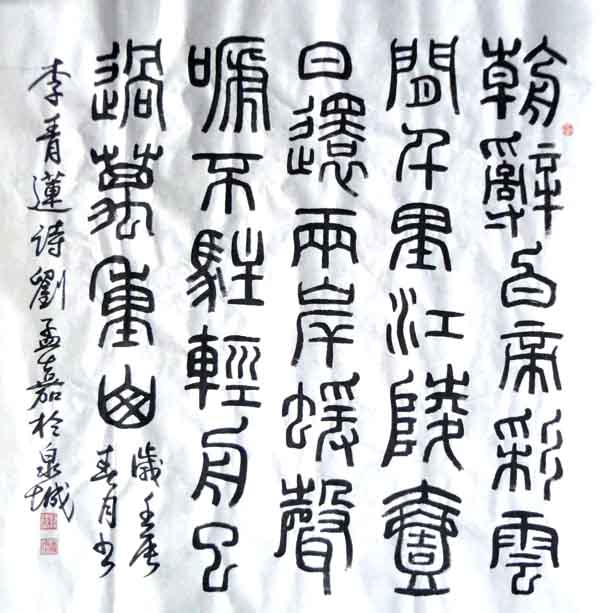 朝辭白帝彩雲
間千里江陵壹
日還兩岸蝯聲
嗁不駐輕舟已
過萬重山
歲壬辰
春月書
李青蓮詩劉孟嘉於泉城